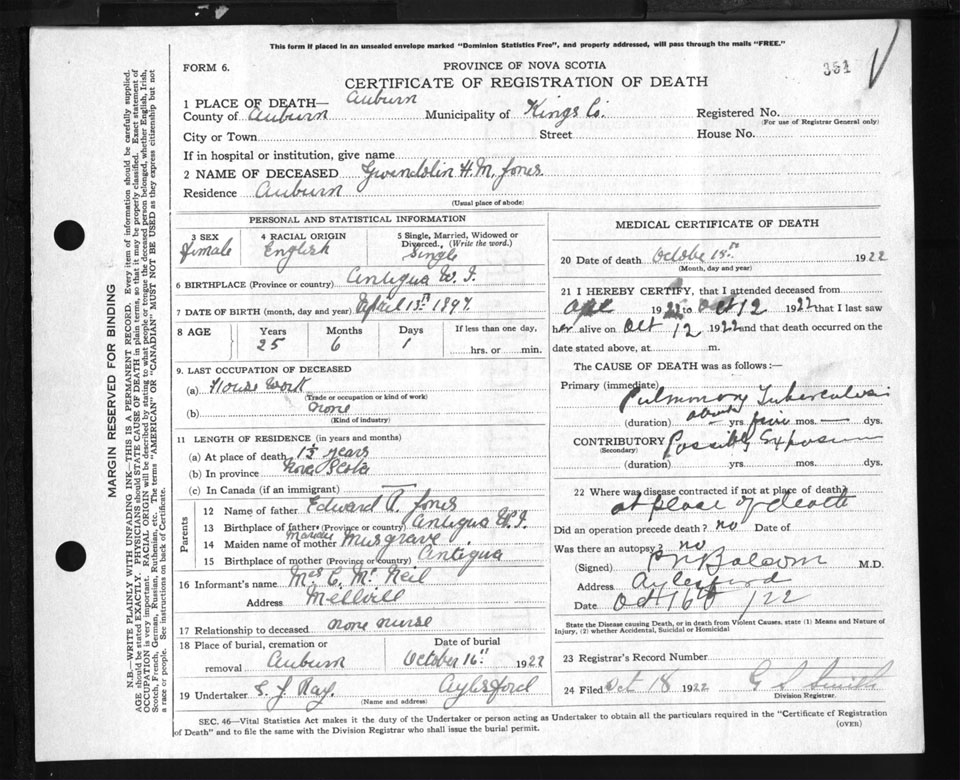 This form if placed in an unsealed envelope marked "Dominion Statistics Free", and properly addressed, will pass through the mails "FREE."
FORM 6.
PROVINCE OF NOVA SCOTIA
351
CERTIFICATE OF REGISTRATION OF DEATH
1 PLACE OF DEATH— Auburn
County of Auburn Municipality of Kings Co. Registered No.
(For use of Registrar General only)
City or Town Street House No.
If in hospital or institution, give name
2 NAME OF DECEASED Gwendolin H.M. Jones
Residence Auburn
(Usual place of abode)
PERSONAL AND STATISTICAL INFORMATION
3 SEX 4 RACIAL ORIGIN 5 Single, Married, Widowed or Divorced, (Write the word.)
Female English Single
6 BIRTHPLACE (Province or country) Antigua W.I.
7 DATE OF BIRTH (month, day and year) April 13th 1897
8 AGE Years Months Days If less than one day,
25 6 1 hrs. or min.
9. LAST OCCUPATION OF DECEASED
(a) House Work
(Trade or occupation or kind of work)
(b) none
(Kind of industry)
11 LENGTH OF RESIDENCE (in years and months)
(a) At place of death years
(b) In province Nova Scotia
(c) In Canada (if an immigrant)
Parents
12 Name of father Edward A. Jones
13 Birthplace of father (Province or country) Antigua W.I.
14 Maiden name of mother Musgrave
15 Birthplace of mother (Province or country) Antigua
16 Informant's name Mrs C. Mc Neil
Address Mellvill
17 Relationship to deceased none nurse
18 Place of burial, cremation or removal Auburn
Date of burial
October 16" 1922
19 Undertaker S. J. Ray. Aylesford
(Name and address)
MEDICAL CERTIFICATE OF DEATH
20 Date of death October 15th 1922
(Month, day and year)
21 I HEREBY CERTIFY, that I attended deceased from
1922 to Oct 12 1922 that I last saw
her alive on Oct 12 1922 and that death occurred on the
date stated above, at m.
The CAUSE OF DEATH was as follows:—
Primary (immediate) Pulmonary Tuberculosis
(duration) about yrs. five mos. — dys.
CONTRIBUTORY Possibly Exposure
(Secondary)
(duration) yrs. mos. dys.
22 Where was disease contracted if not at place of death?
at place of death
Did an operation precede death? no Date of
Was there an autopsy? no
(Signed) Balcom M.D.
Address Aylesford
Date Oct 16th /22
State the Disease causing Death, or in death from Violent Causes, state (1) Means and Nature of Injury, (2) whether Accidental, Suicidal or Homicidal
23 Registrar's Record Number
24 Filed Oct 18 1922 G S Smith
Division Registrar.
SEC. 46—Vital Statistics Act makes it the duty of the Undertaker or person acting as Undertaker to obtain all the particulars required in the "Certificate of Registration
of Death" and to file the same with the Division Registrar who shall issue the burial permit.
(OVER)
MARGIN RESERVED FOR BINDING
N.B.—WRITE PLAINLY WITH UNFADING INK—THIS IS A PERMANENT RECORD. Every item of information should be carefully supplied.
AGE should be stated EXACTLY. PHYSICIANS should STATE CAUSE OF DEATH in plain terms, so that it may be properly classified. Exact statement of
OCCUPATION is very important. RACIAL ORIGIN will be described by stating to what people or tongue the deceased person belonged, whether English, Irish,
Scotch, French, German, Russian, Ruthenian, etc. The terms "AMERICAN" OR "CANADIAN" MUST NOT BE USED as they express citizenship but not
a race or people. See instructions on back of Certificate.